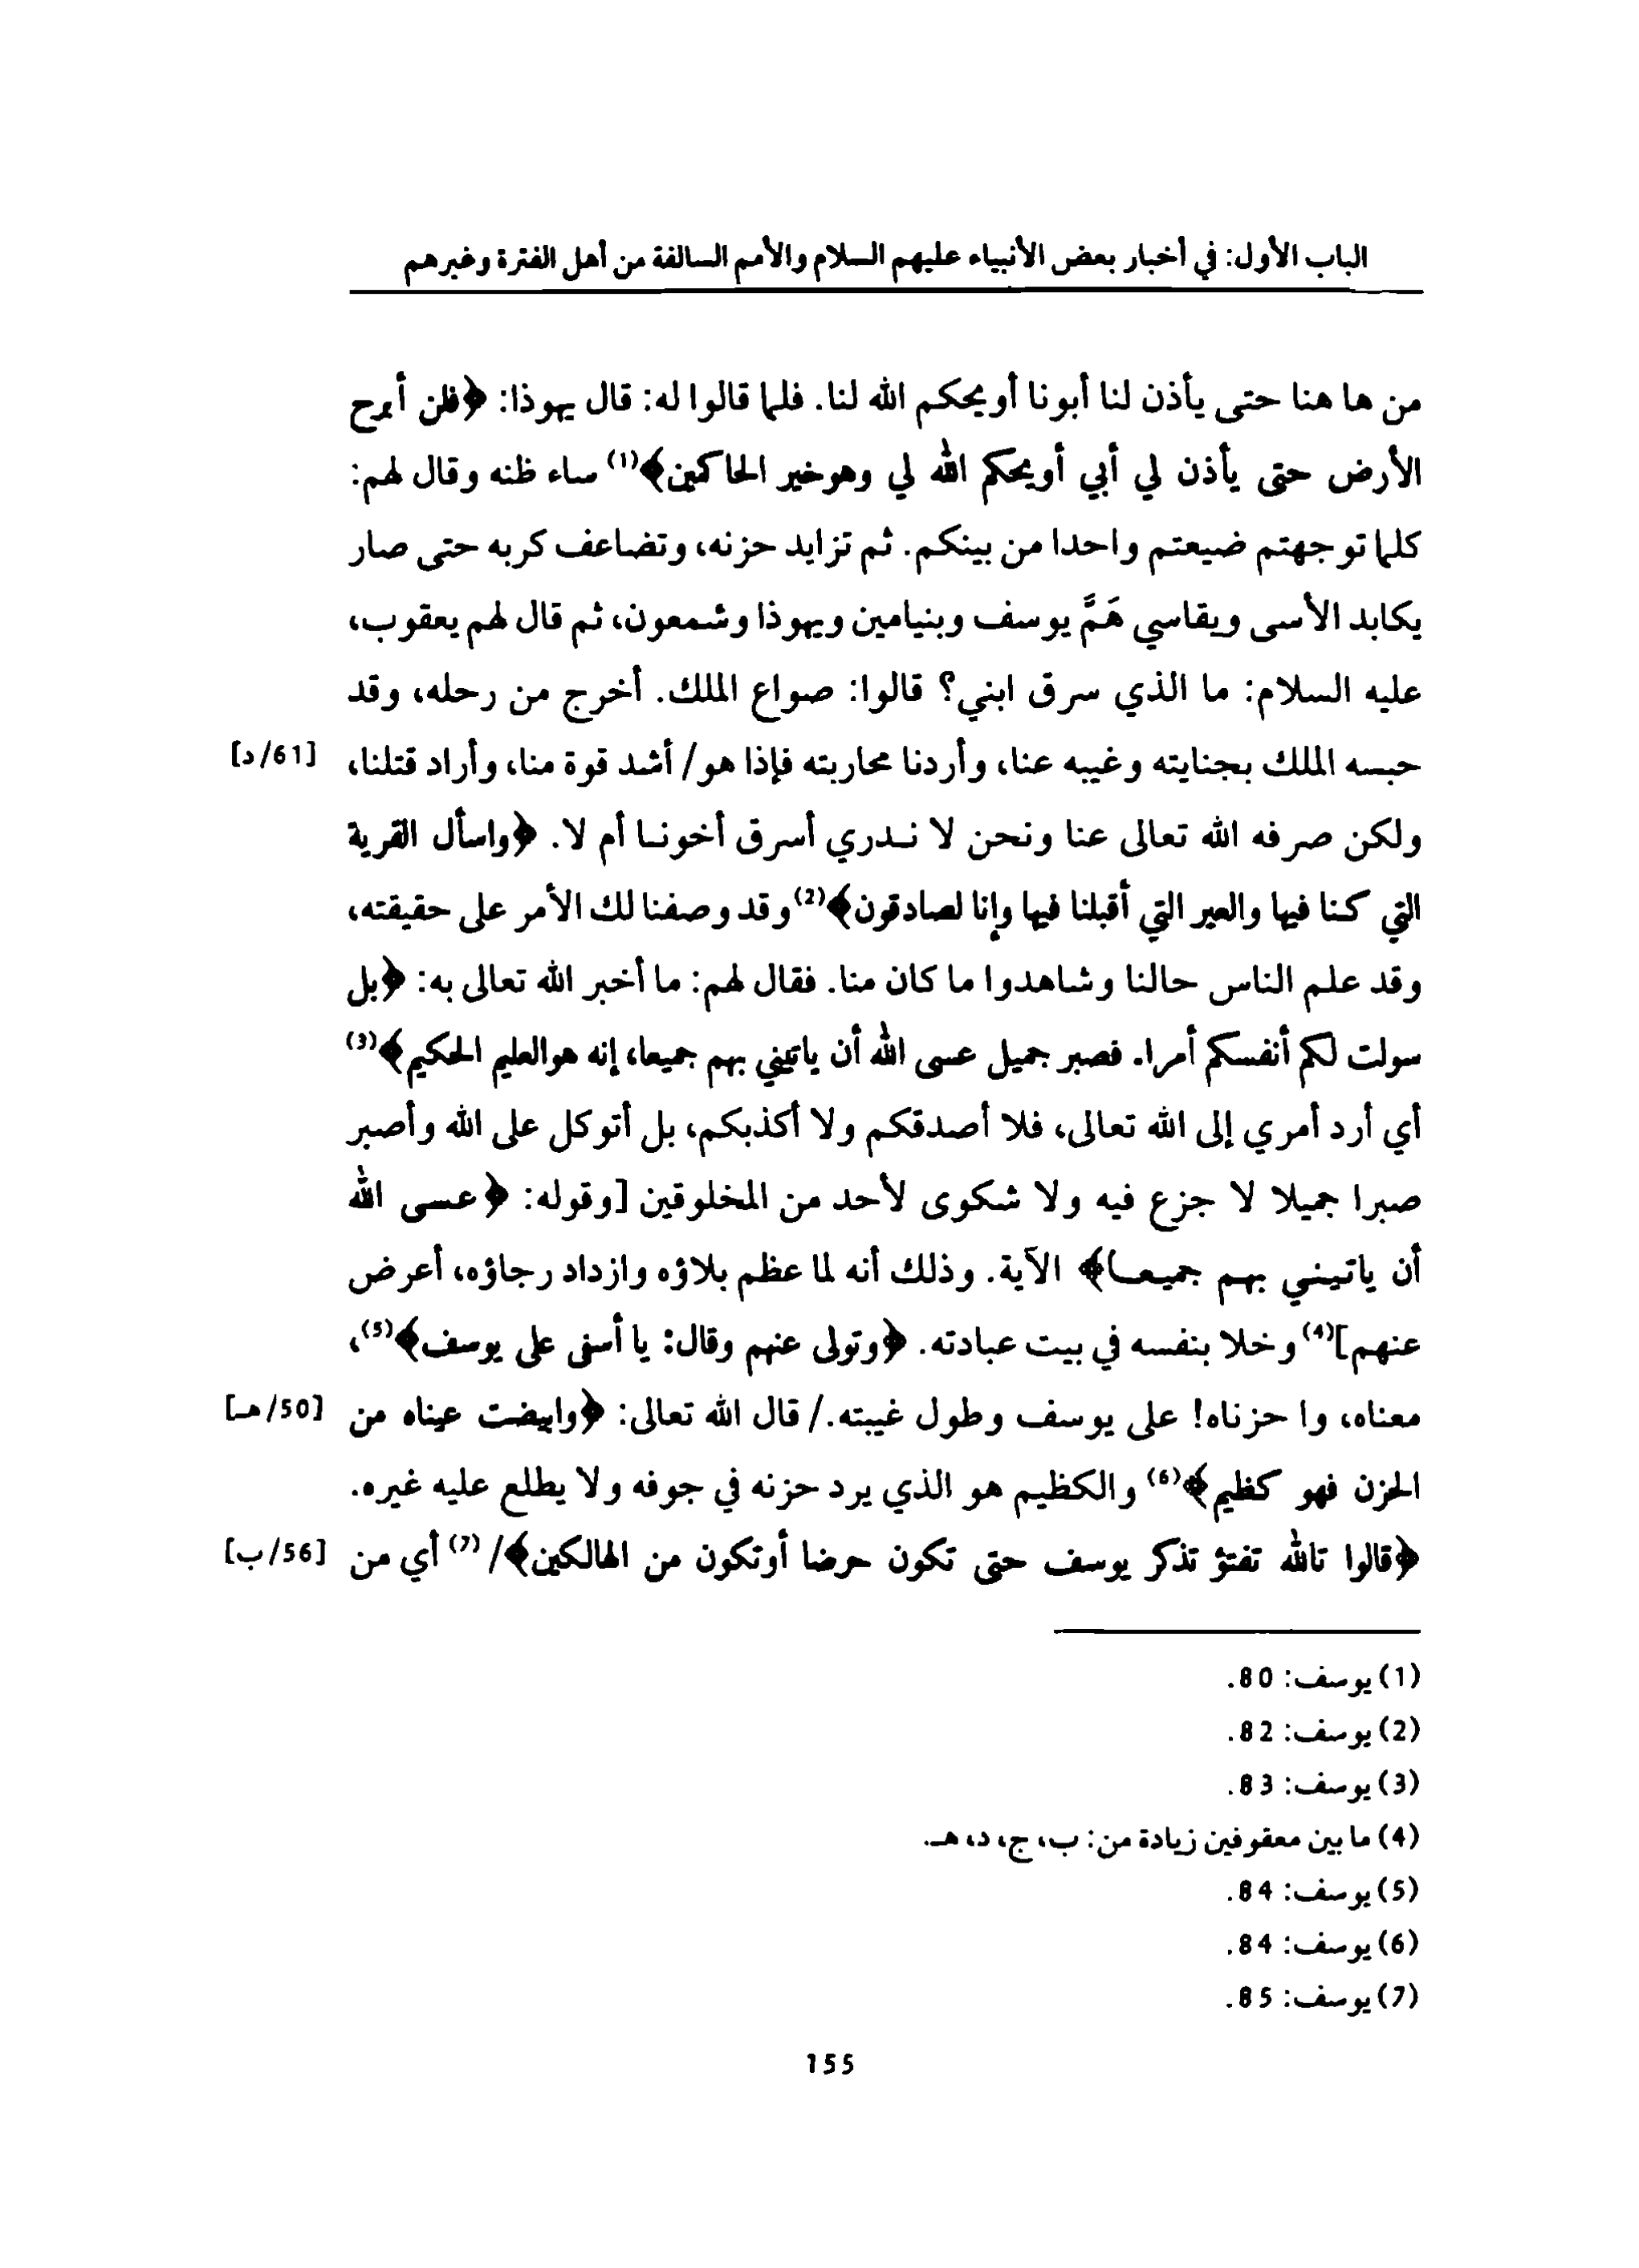 الباب الأول: في أخبار بعض الأنبياء عليهم السلام والأمم السالفة من أهل الفترة وغيرهم
من ها هنا حتى يأذن لنا أبونا أويحكم الله لنا. فلما قالوا له: قال يهوذا: ﴿فلن أبرح
الأرض حتى يأذن لي أبي أويحكم الله لي وهوخير الحاكمين﴾(1) ساء ظنه وقال لهم:
كلما توجهتم ضيعتم واحدا من بينكم. ثم تزايد حزنه، وتضاعف كربه حتى صار
يكابد الأسى ويقاسي هَمَّ يوسف وبنيامين ويهوذا وشمعون، ثم قال لهم يعقوب،
عليه السلام: ما الذي سرق ابني؟ قالوا: صواع الملك. أخرج من رحله، وقد
حبسه الملك بجنايته وغيبه عنا، وأردنا محاربته فإذا هو/ أشد قوة منا، وأراد قتلنا، [61/د]
ولكن صرفه الله تعالى عنا ونحن لا نـدري أسرق أخونـا أم لا. ﴿واسأل القرية
التي كنا فيها والعير التي أقبلنا فيها وإنا لصادقون﴾(2) وقد وصفنا لك الأمر على حقيقته،
وقد علم الناس حالنا وشاهدوا ما كان منا. فقال لهم: ما أخبر الله تعالى به: ﴿بل
سولت لكم أنفسكم أمرا. فصبر جميل عسى الله أن ياتيني بهم جميعا، إنه هوالعليم الحكيم﴾(3)
أي أرد أمري إلى الله تعالى، فلا أصدقكم ولا أكذبكم، بل أتوكل على الله وأصبر
صبرا جميلا لا جزع فيه ولا شكوى لأحد من المخلوقين [وقوله: ﴿عسى الله
أن ياتيني بهم جميعـا﴾ الآية. وذلك أنه لما عظم بلاؤه وازداد رجاؤه، أعرض
عنهم](4) وخلا بنفسه في بيت عبادته. ﴿وتولى عنهم وقال: يا أسفى على يوسف﴾(5)،
معناه، وا حزناه! على يوسف وطول غيبته./ قال الله تعالى: ﴿وابيضت عيناه من [50/هـ]
الحزن فهو كظيم﴾(6) والكظيم هو الذي يرد حزنه في جوفه ولا يطلع عليه غيره.
﴿قالوا تالله تفتؤ تذكر يوسف حتى تكون حرضا أوتكون من الهالكين﴾/(7) أي من [56/ب]
(1) يوسف: 80.
(2) يوسف: 82.
(3) يوسف: 83.
(4) ما بين معقوفين زيادة من: ب، ج، د، هـ.
(5) يوسف: 84.
(6) يوسف: 84.
(7) يوسف: 85.
155